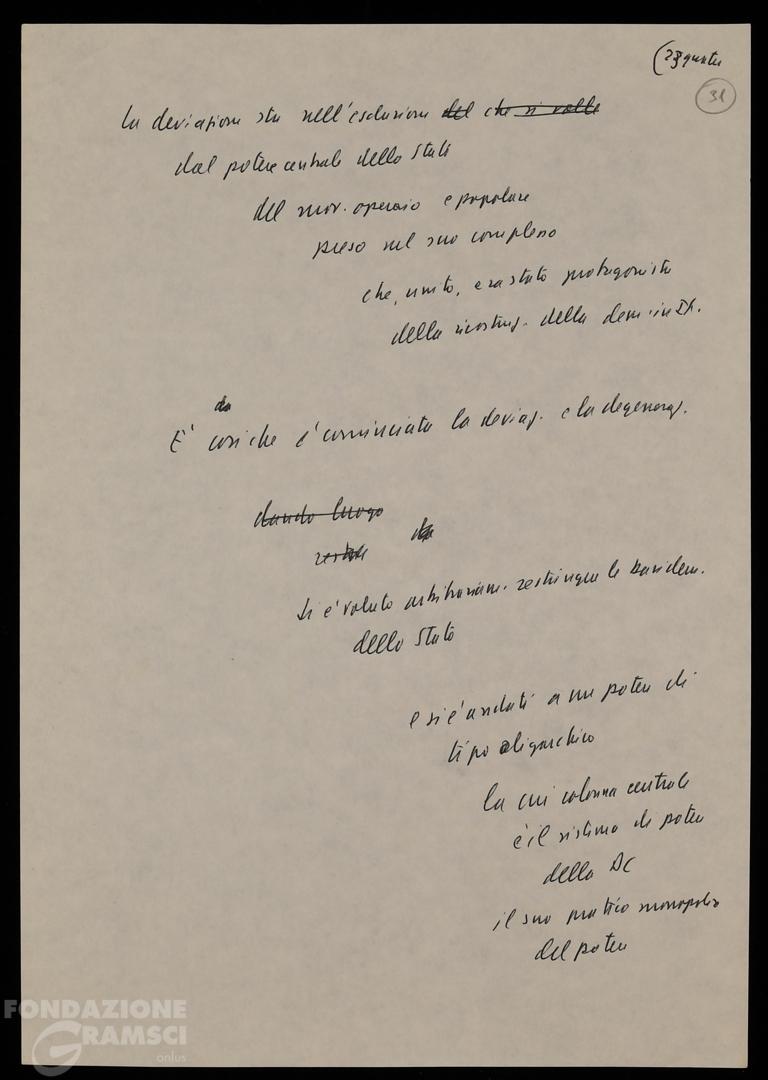 (23 quater
31
La deviazione sta nell'esclusione del che si volle
dal potere centrale dello Stato
del mov. operaio e popolare
preso nel suo complesso
che, unito, era stato protagonista
della ricostruz. della dem. in It.
da
E' così che è cominciata la deviaz. e la degeneraz.
dando luogo
Si è voluto arbitrariam. restringere le basi dem.
dello Stato
e si è andati a un potere di
tipo oligarchico
la cui colonna centrale
è il sistema di potere
della DC
il suo pratico monopolio
del potere
FONDAZIONE
GRAMSCI
onlus